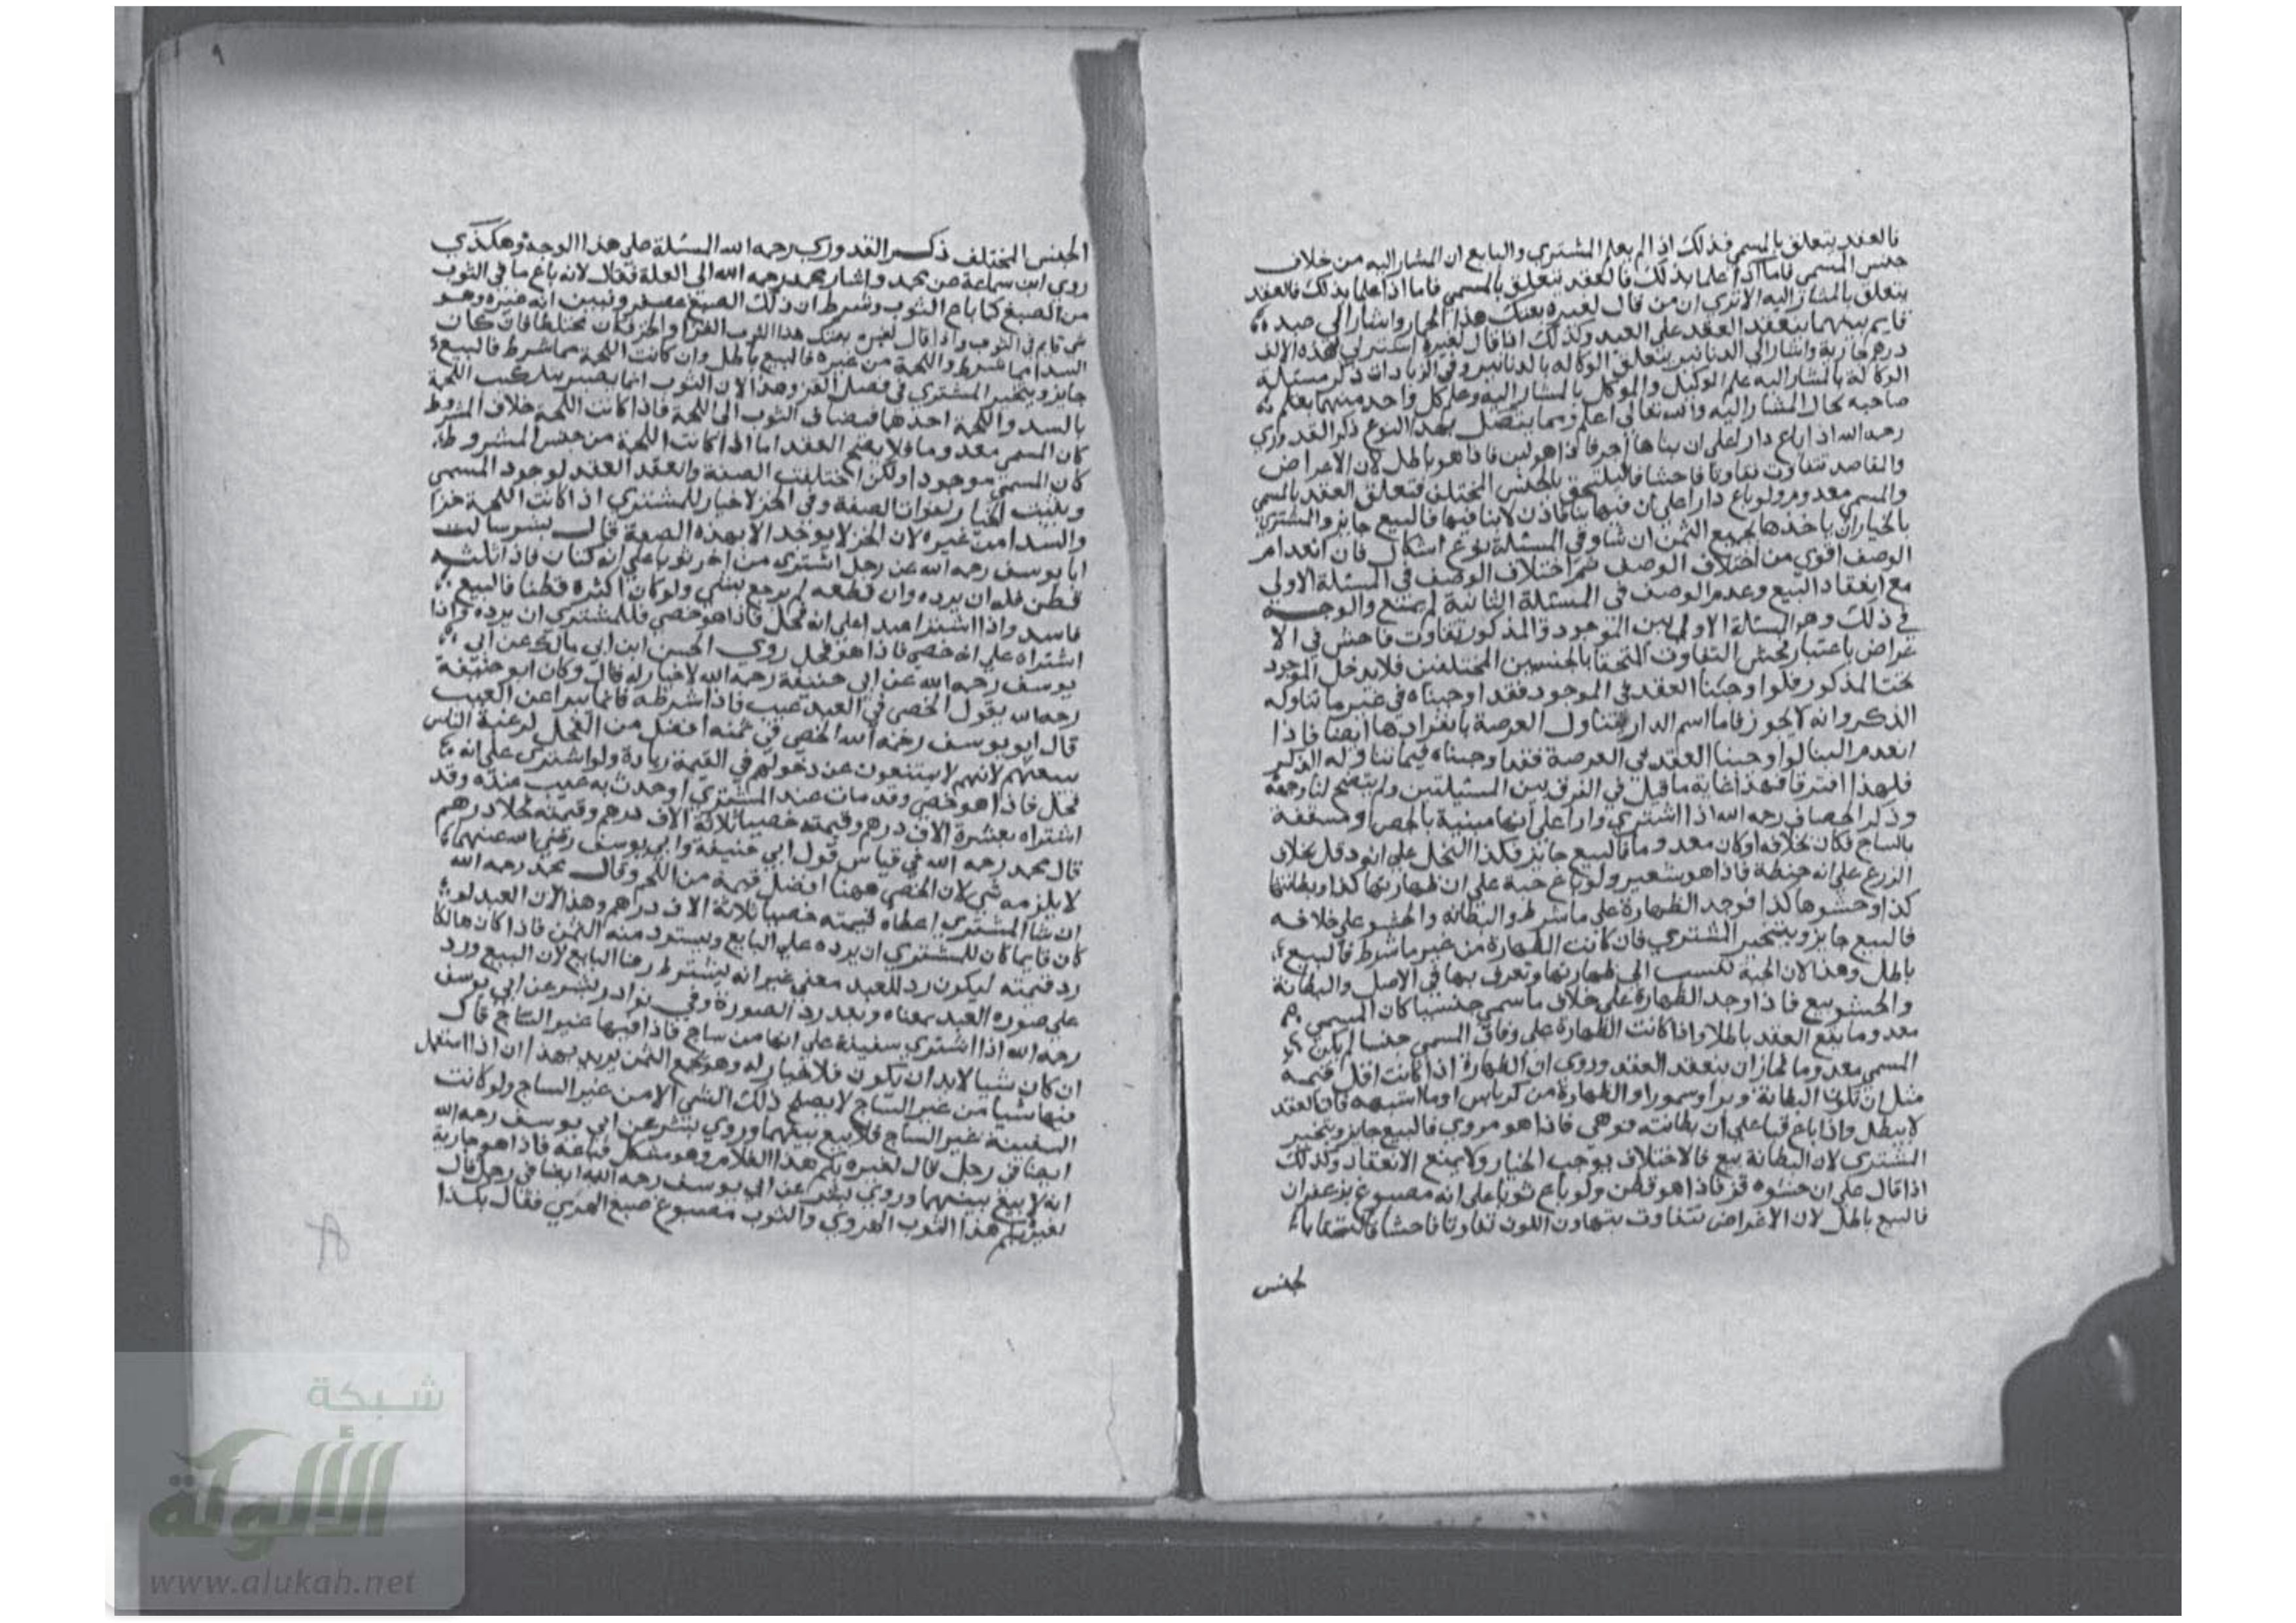 فالعقد يتعلق بالمسمي فذلك اذا لم يعلم المشتري والبايع ان المشار اليه من خلاف
جنس المسمي فاما اذا علما بذلك فالعقد يتعلق بالمسمي فاما اذا علما بذلك فالعقد
يتعلق بالمشار اليه الا تري ان من قال لغيره بعتك هذا الحمار واشار الي عبد
قايم بينهما ينعقد العقد علي العبد وكذلك اذا قال لغيره اشتر لي بهذه الالف
درهم جارية واشار الي الدنانير يتعلق الوكالة بالدنانير وفي الزيادات ذكر مسئلة
الوكالة بالمشار اليه علم الوكيل والموكل بالمشار اليه وعلم كل واحد منهما بعلم
صاحبه بحال المشار اليه والله تعالي اعلم ومما يتصل بهذا النوع ذكر القدوري
رحمه الله اذا باع دارا علي ان بناها اجر فاذا هو لبن فاذا هو باطل لان الاغراض
والمقاصد تتفاوت تفاوتا فاحشا فالتحق بالجنس المختلف فتعلق العقد بالمسمي
والمسمي معدوم ولو باع دارا علي ان فيها بنا فاذن لا بنا فيها فالبيع جايز والمشتري
بالخيار ان ياخذها بجميع الثمن ان شا وفي المسئلة نوع اشكال فان انعدام
الوصف اقوي من اختلاف الوصف ثم اختلاف الوصف في المسئلة الاولي
مع انعقاد البيع وعدم الوصف في المسئلة الثانية لم يمنع والوجه
في ذلك وهو المسئلة الاولي بين الموجود والمذكور تفاوت فاحش في الا
غراض باعتبار فحش التفاوت التحقا بالجنسين المختلفين فلا يدخل الموجود
تحت المذكور فلو اوجبنا العقد في الموجود فقد اوجبناه في غير ما تناوله
الذكر وانه لا يجوز فاما اسم الدار يتناول العرصة بانفرادها ايضا فاذا
انعدم البنا لو اوجبنا العقد في العرصة فقد اوجبناه فيما تناوله الذكر
فلهذا افترقا فهذا غاية ما قيل في الفرق بين المسئلتين ولم يتضح لنا وجهه
وذكر الخصاف رحمه الله اذا اشتري دارا علي انها مبنية بالجص او مسقفة
بالساج فكان بخلافه او كان معدوما فالبيع جايز فكذا النخل علي انه دقل بخلاف
الزرع علي انه حنطة فاذا هو شعير ولو باع جبة علي ان ظهارتها كذا وبطانتها
كذا وحشوها كذا فوجد الظهارة علي ما شرط والبطانه والحشو علي خلافه
فالبيع جايز ويتخير المشتري فان كانت الظهارة من غير ما شرط فالبيع
باطل وهذا لان الجبة تنسب الي ظهارتها وتعرف بها في الاصل والبطانة
والحشو بيع فاذا وجد الظهارة علي خلاف ما سمي جنسيا كان المسمي
معدوما يقع العقد باطلا واذا كانت الظهارة علي وفاق المسمي جنسا لم يكن
المسمي معدوما فجاز ان ينعقد العقد وروي ان الظهارة اذا كانت اقل قيمة
مثل ان تكون البطانة وبرا وسمورا والظهارة من كرباس او ما اشبهه فان العقد
لا يبطل واذا باع قبا علي ان بطانته فوهي فاذا هو مروي فالبيع جايز ويتخير
المشتري لان البطانة بيع فالاختلاف يوجب الخيار ولا يمنع الانعقاد وكذلك
اذا قال علي ان حشوه قز فاذا هو قطن ولو باع ثوبا علي انه مصبوغ بزعفران
فالبيع باطل لان الاغراض تتفاوت بتهاون اللون تفاوتا فاحشا فالتحقا با
لجنس
٩
الجنس المختلف ذكر القدوري رحمه الله المسئلة علي هذا الوجه وهكذي
روي ابن سماعة عن محمد واشار محمد رحمه الله الي العلة فقال لانه باع ما في الثوب
من الصبغ كما باع الثوب وشرط ان ذلك الصبغ عصفر وتبين انه غيره وهو
شي قايم في الثوب واذا قال لغيره بعتك هذا الثوب القز او الخز فكان مختلطا فان كان
السدا مما شرط واللحمة من غيره فالبيع باطل وان كانت اللحمة مما شرط فالبيع
جايز ويتخير المشتري في فصل القز وهذا لان الثوب انما يصير بتركيب اللحمة
بالسد واللحمة احدهما فيضاف الثوب الي اللحمة فاذا كانت اللحمة خلاف المشروط
كان المسمي معدوما فلا يصح العقد اما اذا كانت اللحمة من جنس المشروط
كان المسمي موجودا ولكن اختلفت الصفة وانعقد العقد لوجود المسمي
ويثبت الخيار لفوات الصفة وفي الخز لا خيار للمشتري اذا كانت اللحمة خزا
والسدا من غيره لان الخز لا يوخذ الا بهذه الصفة قال بشر سالت
ابا يوسف رحمه الله عن رجل اشتري من اخر ثوبا علي انه كتان فاذا ثلثه
قطن فله ان يرده وان قطعه لم يرجع بشي ولو كان اكثره قطنا فالبيع
فاسد واذا اشترا عبدا علي انه فحل فاذا هو خصي فللمشتري ان يرده واذا
اشتراه علي انه خصي فاذا هو فحل روي الحسن ابن ابي مالك عن ابي
يوسف رحمه الله عن ابي حنيفة رحمه الله لا خيار له قال وكان ابو حنيفة
رحمه الله يقول الخصي في العبد عيب فاذا شرطه فانما يبرا عن العيب
قال ابو يوسف رحمه الله الخصي في ثمنه افضل من الفحل لرغبة الناس
بيعهم لانهم لا يمتنعون عن دخولهم في القيمة زيادة ولو اشتري علي انه
فحل فاذا هو خصي وقد مات عند المشتري او حدث به عيب عنده وقد
اشتراه بعشرة الاف درهم وقيمته خصيا ثلاثة الاف درهم وقيمته فحلا درهم
قال محمد رحمه الله في قياس قول ابي حنيفة وابي يوسف رضي الله عنهما
لا يلزمه شي لان الخصي ههنا افضل قيمة من الفحل وقال محمد رحمه الله
ان شا المشتري اعطاه قيمته خصيا ثلاثة الاف دراهم وهذا لان العبد لو
كان قايما كان للمشتري ان يرده علي البايع ويسترد منه الثمن فاذا كان هالكا
رد قيمته ليكون رد للعبد معني غير انه يشترط رضا البايع لان البيع ورد
علي صورة العبد بمعناه وتعذر رد الصورة وفي نوادر بشر عن ابي يوسف
رحمه الله اذا اشتري سفينة علي انها من ساج فاذا فيها غير الساج قال
ان كان شيا لا بد ان يكون فلا خيار له وهو بجميع الثمن يريد بهذا ان اذا استعمل
فيها شيا من غير الساج لا يصلح ذلك الشي الا من غير الساج ولو كانت
السفينة غير الساج فلا بيع بينهما وروي بشر عن ابي يوسف رحمه الله
ايضا في رجل قال لغيره بكم هذا الغلام وهو مشكل قناعه فاذا هو جارية
انه لا بيع بينهما وروي بشر عن ابي يوسف رحمه الله ايضا في رجل قال
لغيره بكم هذا الثوب الهروي والثوب مصبوغ صبغ الهري فقال بكذا
شبكة
الألوكة
www.alukah.net